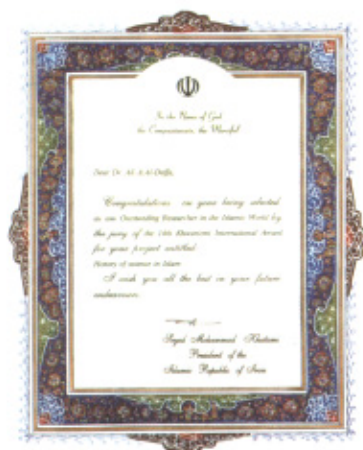 In the Name of God
the Compassionate, the Merciful
Dear Dr. Ali A. Al-Daffa,
Congratulations on your being selected
as an Outstanding Researcher in the Islamic World by
the jury of the 14th Khwarizmi International Award
for your project entitled:
History of science in Islam
I wish you all the best in your future
endeavours.
Seyed Mohammad Khatami
President of the
Islamic Republic of Iran